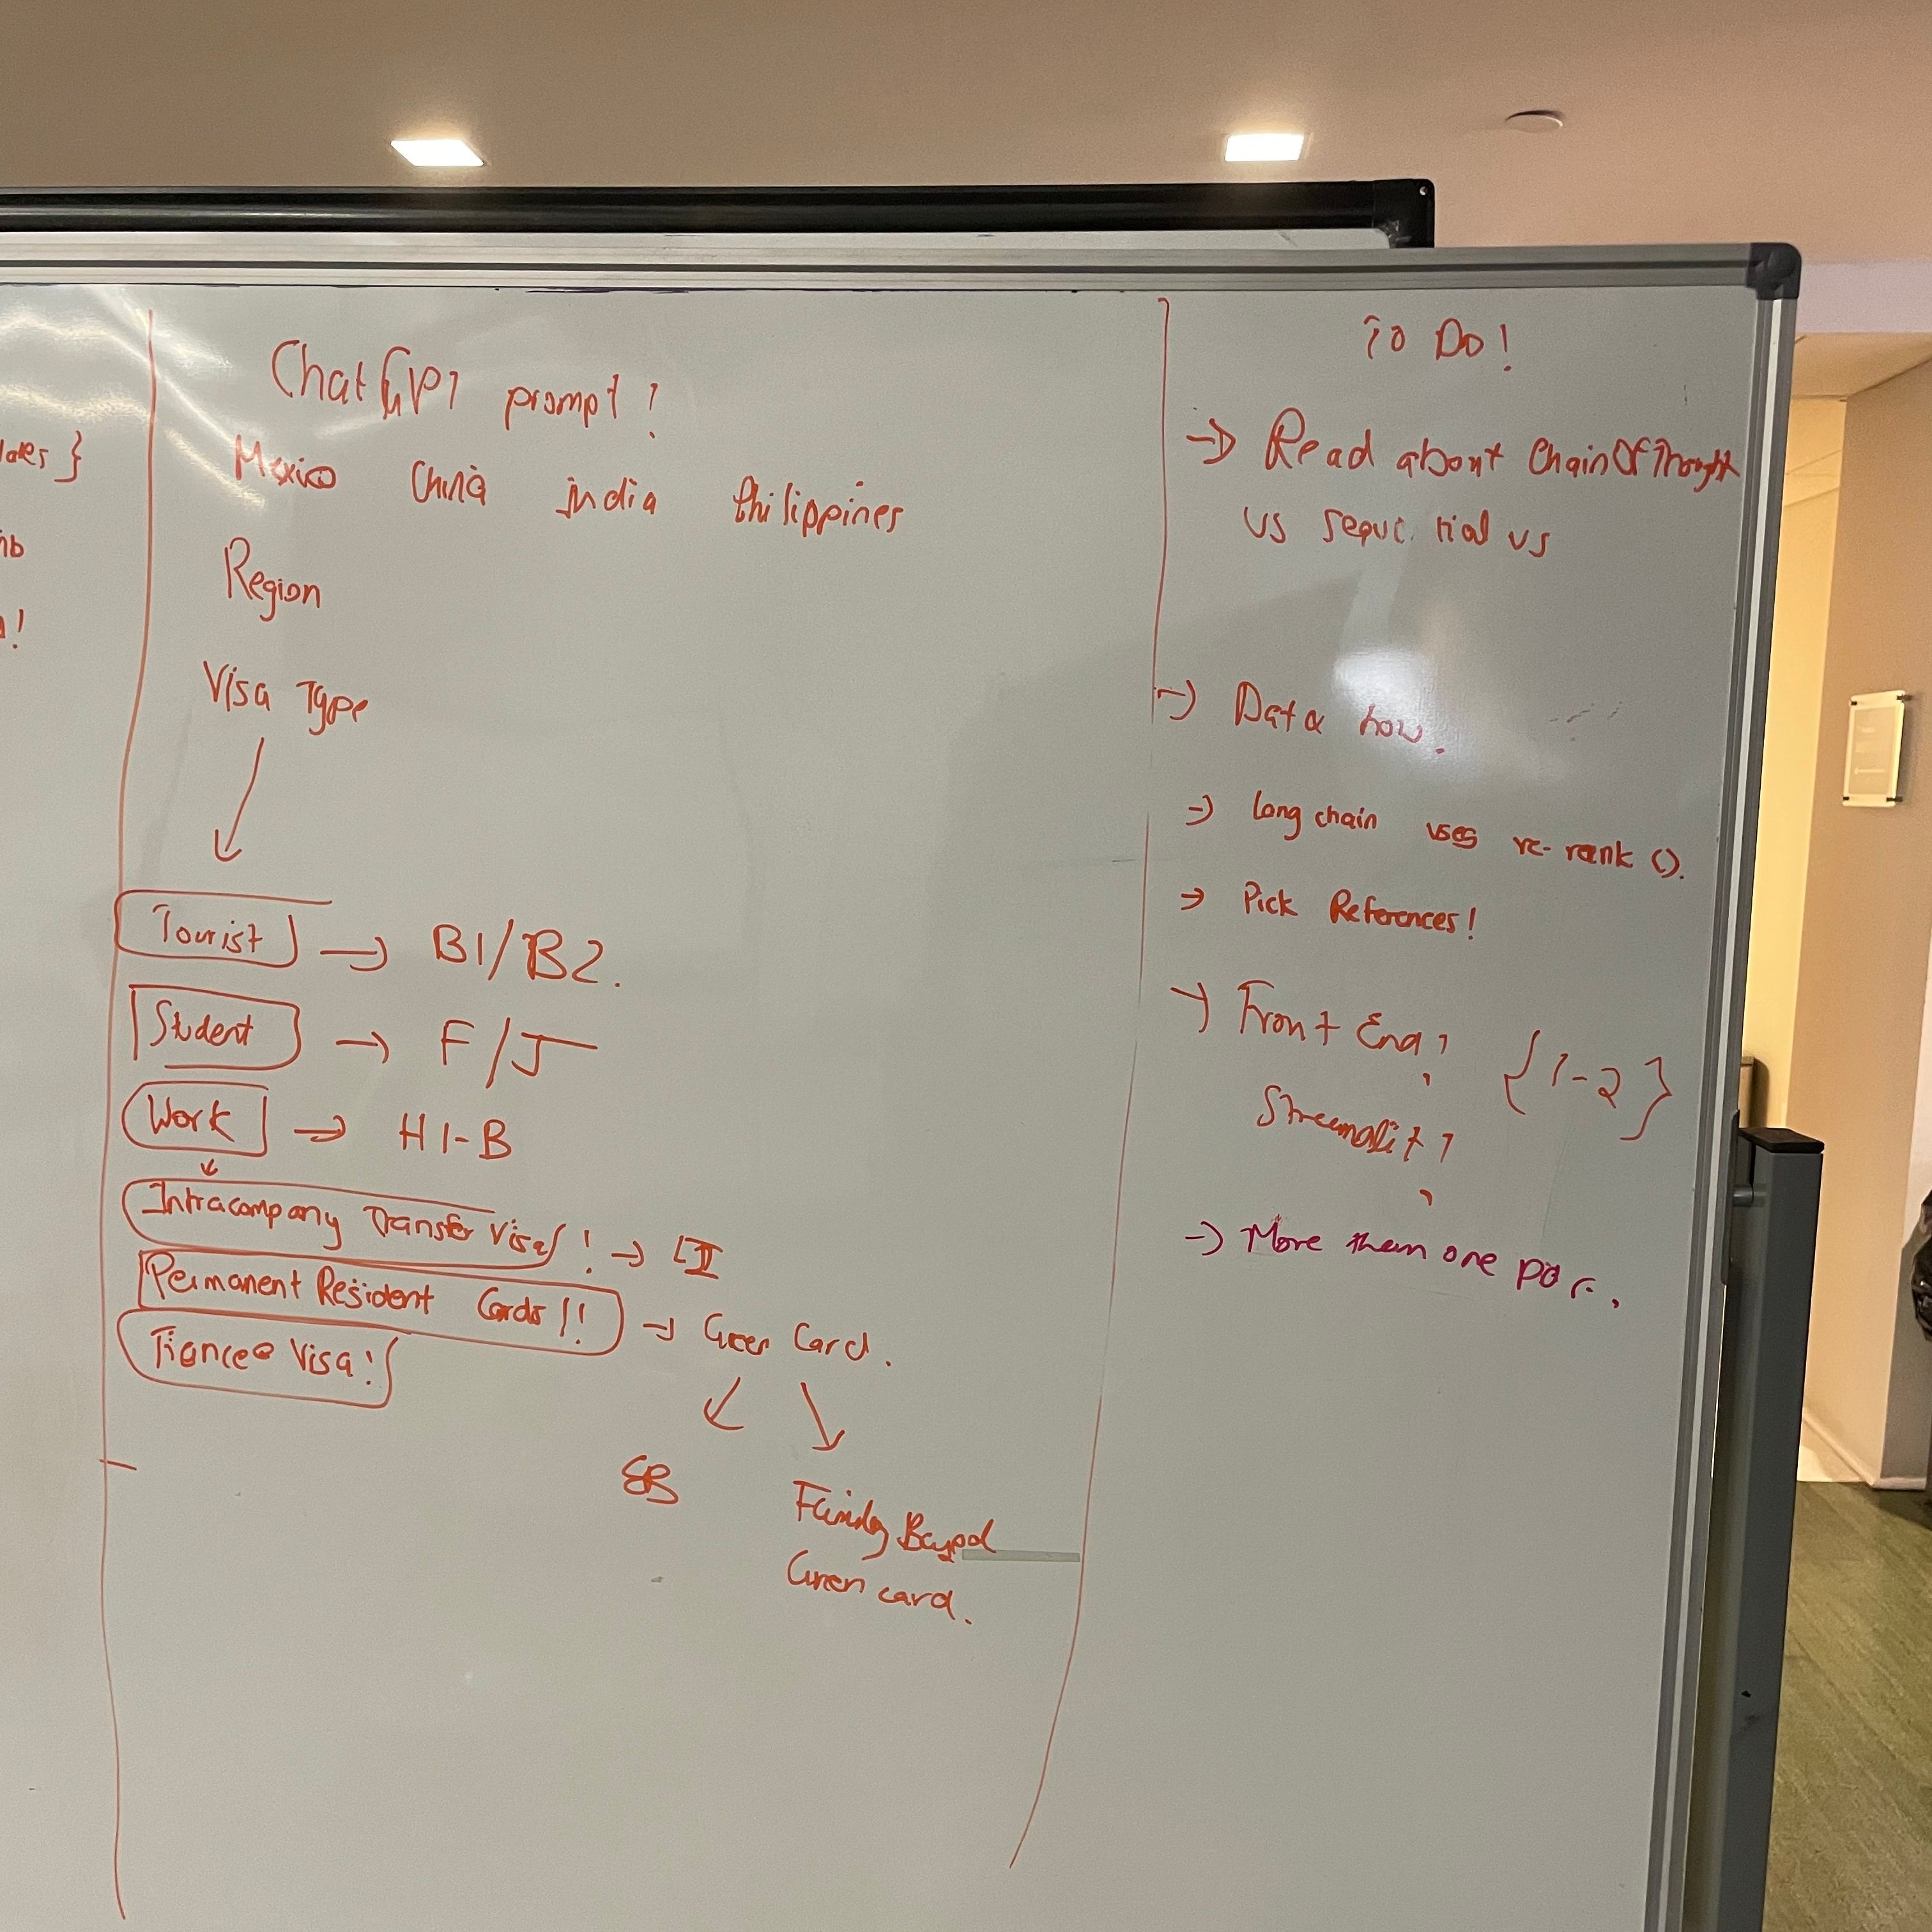 ChatGPT prompt!
Mexico China india Philippines
Region
Visa Type
Tourist → B1/B2.
Student → F/J
Work → H1-B
Intracompany Transfer Visa! →
Permanent Resident Cards!! → Green Card.
Fiancee Visa!
EB
Family Based
Green card.
To Do!
→ Read about ChainOfThought
vs vs
→ Data how.
→ Lang chain uses re-rank ().
→ Pick References!
→ Front End? {1-2}
Streamlit?
→ More than one